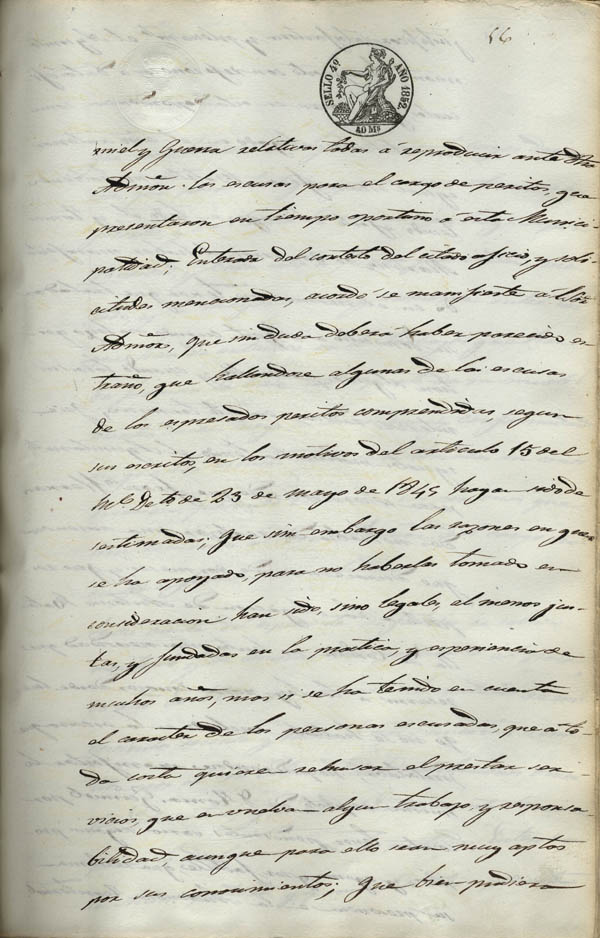 56
SELLO 4º AÑO 1852
40 Ms
miel y Guerra relativas todas á reproducir ante
Admôn. las escusas para el cargo de peritos, que
presentaron en tiempo oportuno á este Munici-
palidad; Enterada del contesto del citado oficio, y soli-
citudes mencionadas, acordó se manifieste á
Admôr, que sin duda deberá haber parecido es-
traño, que hallandose algunas de las escusas
de los espresados peritos comprendidas, segun
sus escritos, en los motivos del articulo 15 del
Rl. Dto de 23 de mayo de 1845 hayan sido de
sestimadas; que sin embargo las razones en que
se ha apoyado, para no haberlas tomado en
consideracion han sido, sino legales, al menos jus-
tas, y fundadas en la practica, y esperiencia de
muchos años, mas si se ha tenido en cuenta
el caracter de las personas escusadas, que á to-
da costa quieren rehusar el prestar ser-
vicios, que envuelvan algun trabajo, y responsa-
bilidad, aunque para ello sean muy aptos
por sus conocimientos; que bien pudiera